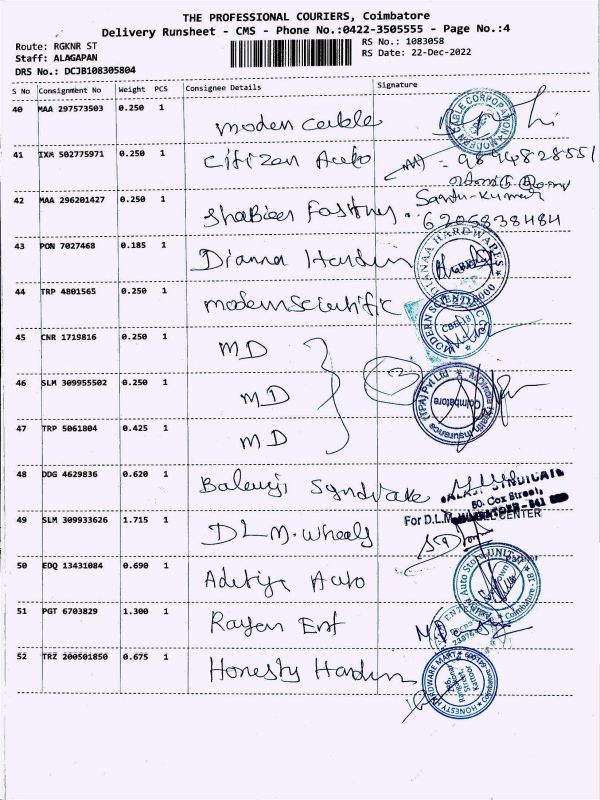 THE PROFESSIONAL COURIERS, Coimbatore
Delivery Runsheet - CMS - Phone No.:0422-3505555 - Page No.:4
Route: RGKNR ST
Staff: ALAGAPAN
DRS No.: DCJB108305804
RS No.: 1083058
RS Date: 22-Dec-2022
S No Consignment No Weight PCS Consignee Details Signature
40 MAA 297573503 0.250 1 moden cable
41 IXM 502775971 0.250 1 Citizen Auto 9894828551
42 MAA 296201427 0.250 1 Shabeer Fastners Santu-Kumar
6205838484
43 PON 7027468 0.185 1 Dianna Hardw
44 TRP 4801565 0.250 1 modern Scientific
45 CNR 1719816 0.250 1 MD
46 SLM 309955502 0.250 1 MD 3
47 TRP 5061804 0.425 1 MD
48 DDG 4629836 0.620 1 Balaji Syndicate
SYNDICATE
60, Cox Street,
49 SLM 309933626 1.715 1 D L M. Wheels
For D.L.M. CENTER
50 EDQ 13431084 0.690 1 Aditya Auto
51 PGT 6703829 1.300 1 Rayen Ent
52 TRZ 200501850 0.675 1 Honesty Hardw
CABLE CORPORATION MODERN
DIANAA HARDWARES
MODERN SCIENTIFIC CO
MDIndia Health Insurance (TPA) Pvt Ltd
Coimbatore
HONESTY HARDWARE MART